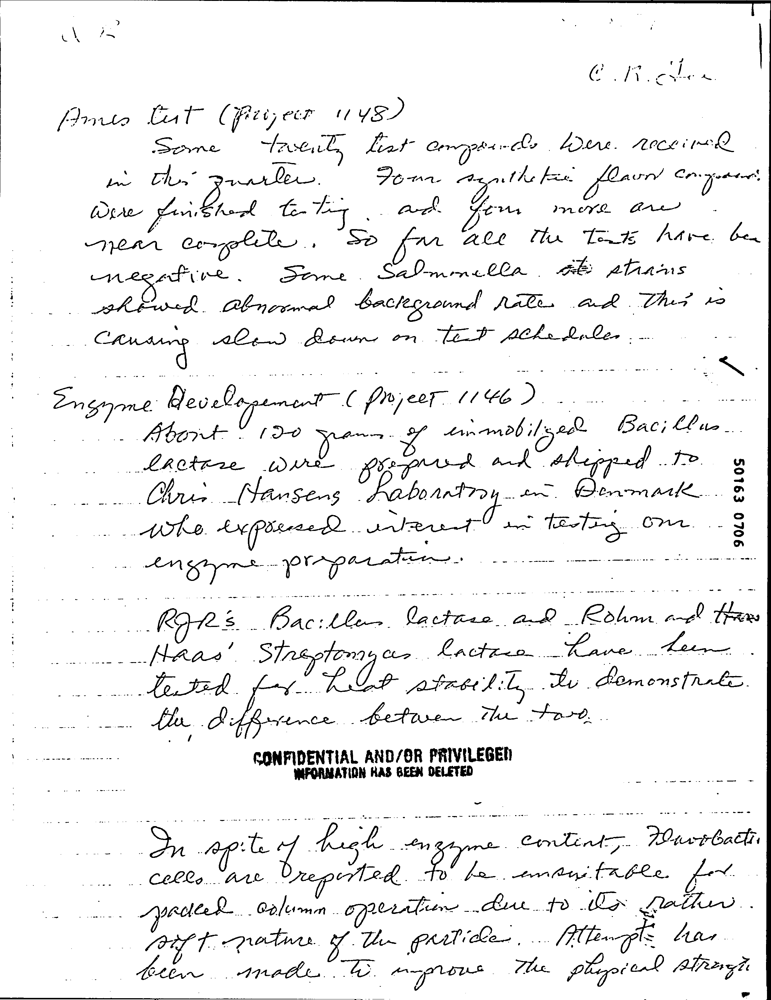 C. R.
Ames test (Project 1148)
Some twenty test compounds were received
in this quarter. Four synthetic flavor
were finished testing and four more are
near complete. So far all the tests have been
negative. Some Salmonella strains
showed abnormal background rate and this is
causing slow down on test schedules.
Enzyme Developement (Project 1146)
About 120 grams of immobilized Bacillus
lactase were prepared and shipped to
Chris Hansens Laboratory in Denmark
who expressed interest in testing our
enzyme preparation.
50163 0706
RJR's Bacillus lactase and Rohm and
Haas' Streptomyces lactase have been
tested for heat stability to demonstrate
the difference between the two.
CONFIDENTIAL AND/OR PRIVILEGED
INFORMATION HAS BEEN DELETED
In spite of high enzyme content, Flavobacte
cells are reported to be unsuitable for
packed column operation due to its rather
soft nature of the particle. Attempt has
been made to improve the physical strength